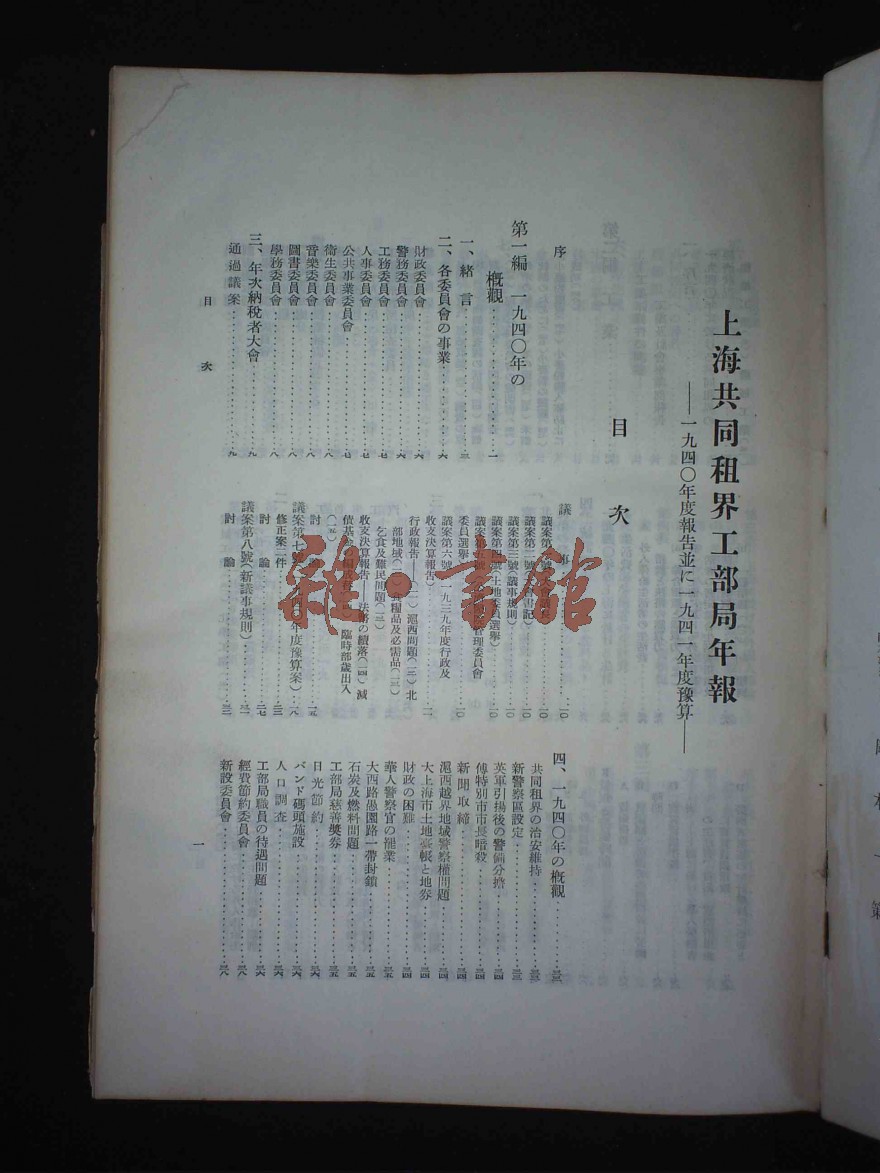 上海共同租界工部局年報
——一九四〇年度報告並に一九四一年度豫算——
目次
序
第一編 一九四〇年の
概觀……一
一、緒言……三
二、各委員會の事業……六
財政委員會……六
警務委員會……六
工務委員會……七
人事委員會……七
公共事業委員會……七
衛生委員會……八
音樂委員會……八
圖書委員會……八
學務委員會……八
三、年次納税者大會……九
通過議案……九
議事……一〇
議案第一號……一〇
議案第二號……書記)……一〇
議案第三號(議事規則)……一〇
議案第四號(土地委員選擧)……一〇
議案第五號……管理委員會
委員選擧)……一〇
議案第六號(一九三九年度行政及
收支決算報告)……一一
行政報告——(一)滬西問題(三)北
部地域(一一)食糧品及必需品(一三)
乞食及難民問題(一三)
收支決算報告—法幣の續落(一四)減
債基金……臨時部歳出入
(一五)
討論……一五
議案第七號……四〇年度豫算案)……一八
修正案二件……二三
討論……二七
議案第八號(新議事規則)……三一
討論……三二
四、一九四〇年の概觀……三三
共同租界の治安維持……三三
新警察區設定……三三
英軍引揚後の警備分擔……三四
傅特別市市長暗殺……三四
新聞取締……三四
滬西越界地域警察權問題……三四
大上海市土地臺帳と地券……三四
財政の困難……三四
華人警察官の罷業……三五
大西路愚園路一帶封鎖……三五
石炭及燃料問題……三五
工部局慈善奬券……三五
日光節約……三六
バンド碼頭施設……三六
人口調査……三六
工部局職員の待遇問題……三六
經費節約委員會……三八
新設委員會……三八
目次
一
雜·書館